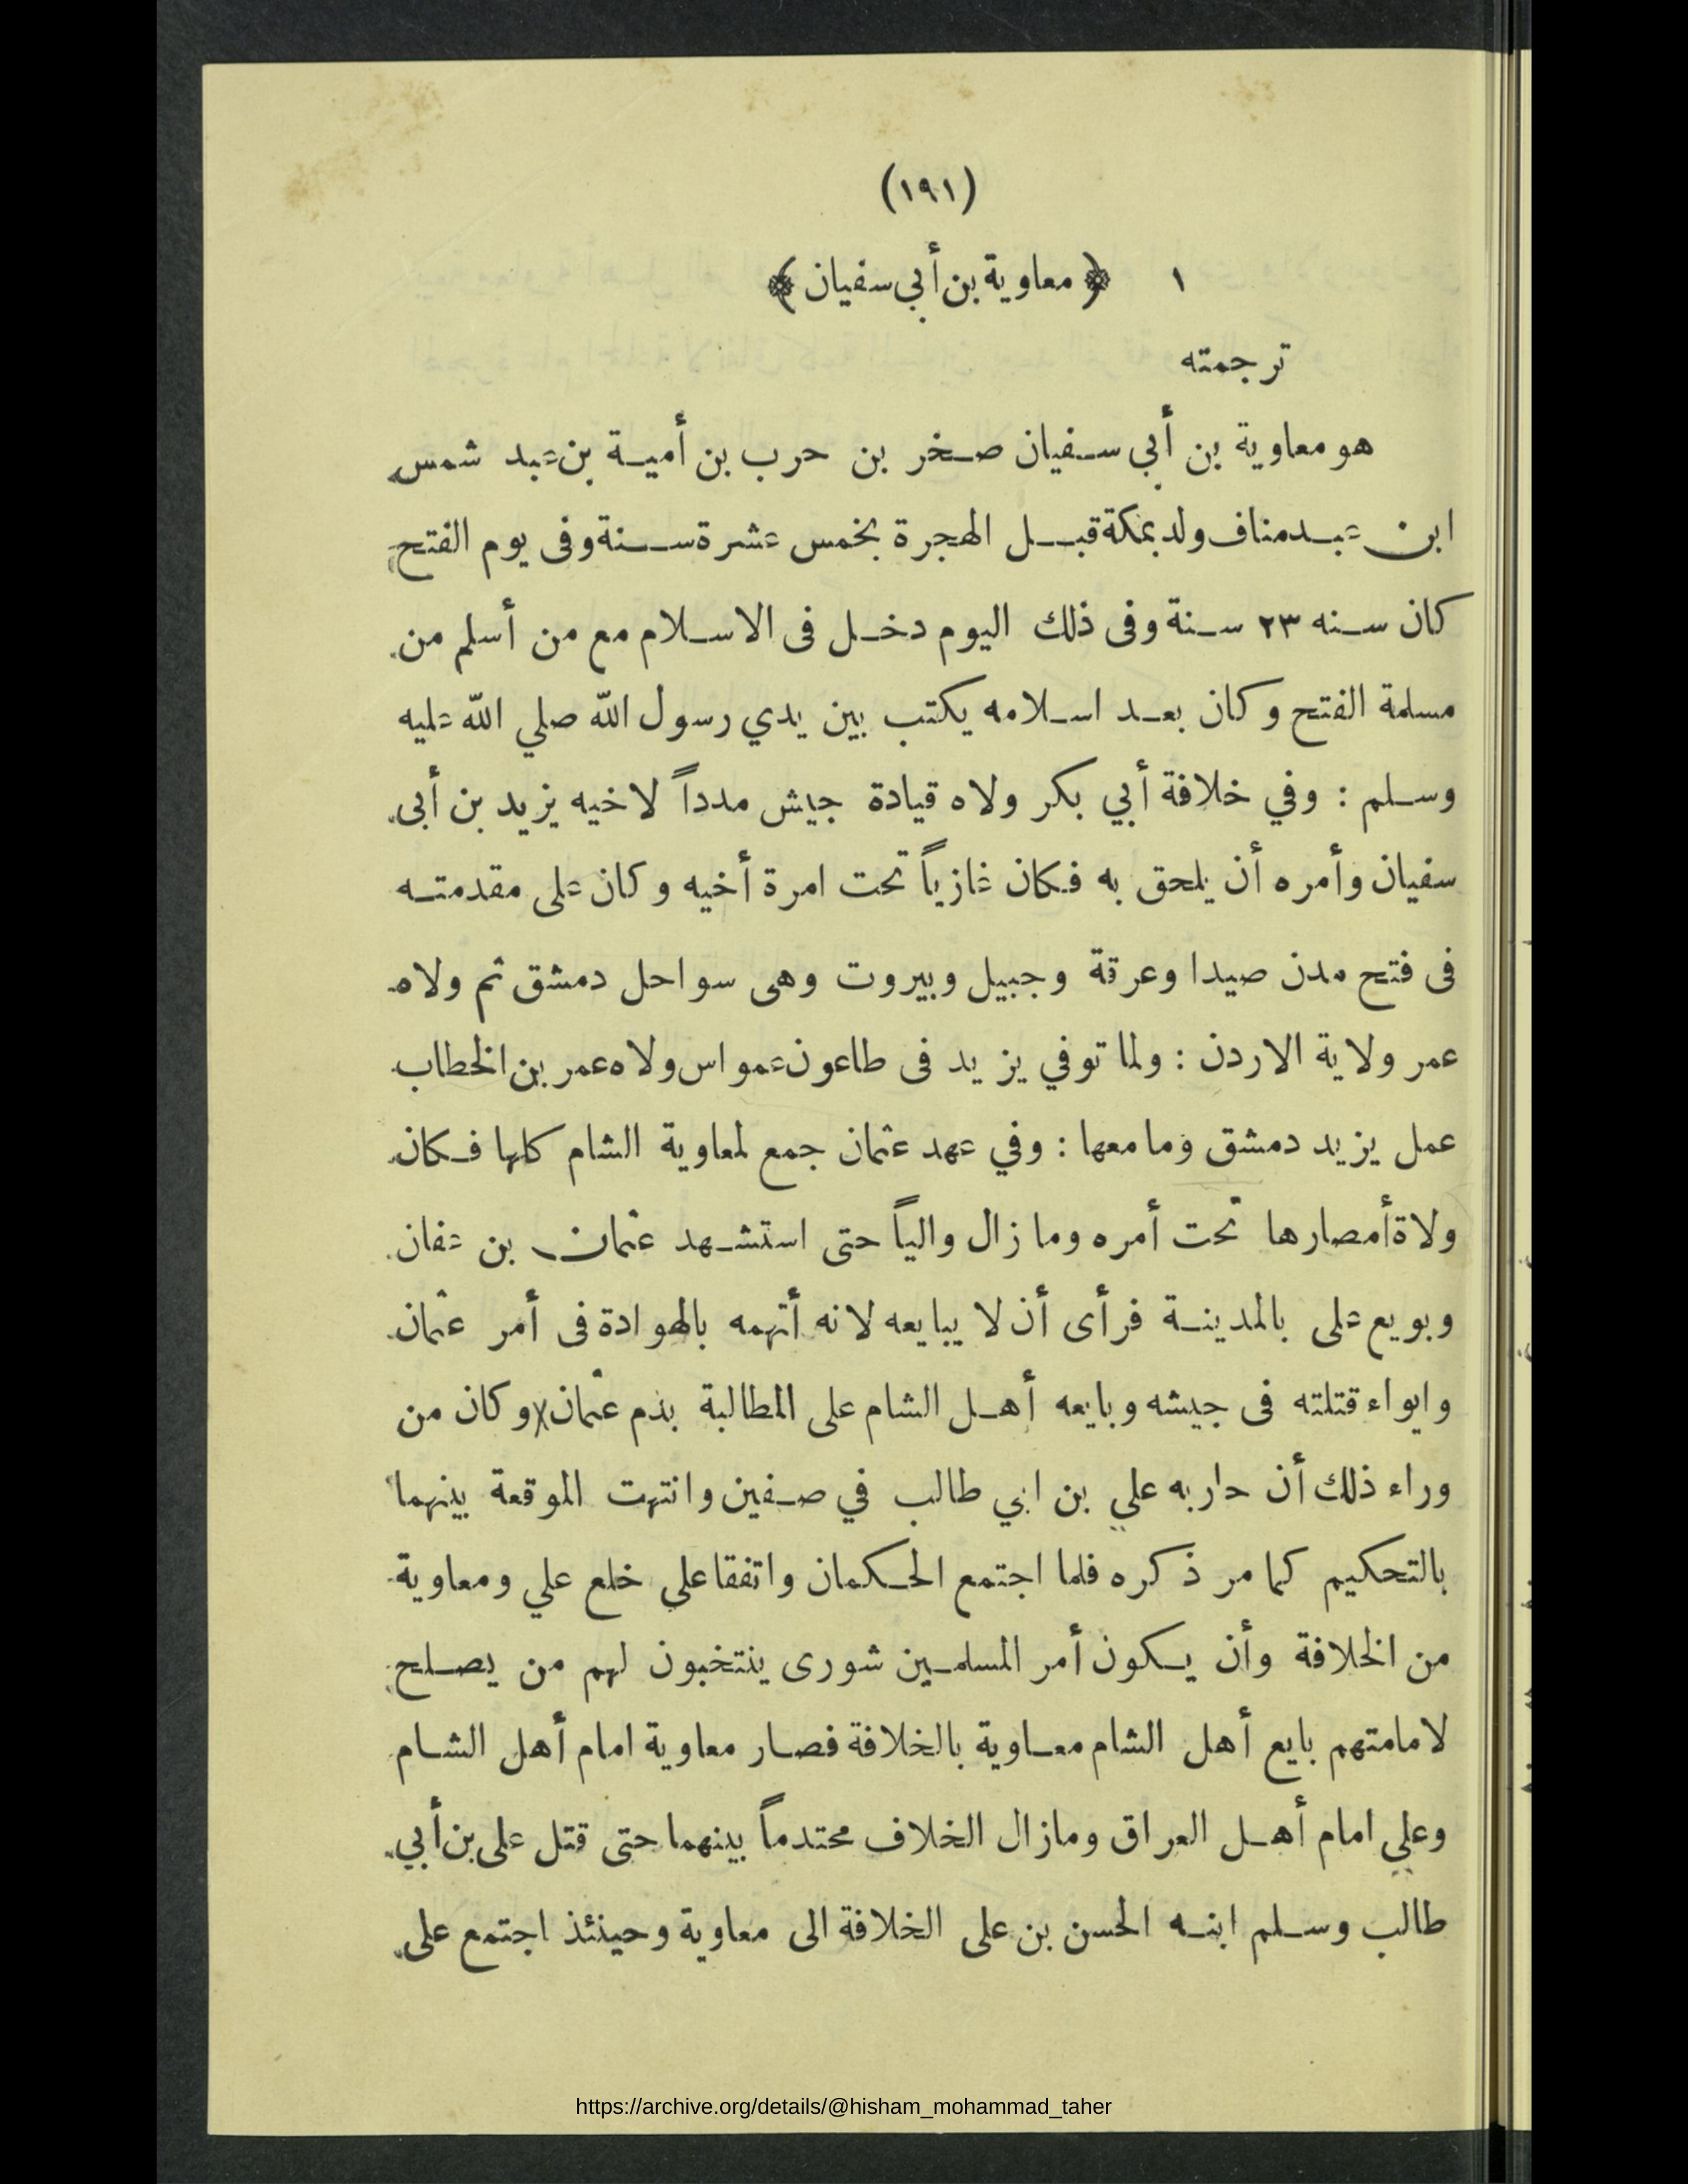 (١٩١)
١ ﴿ معاوية بن أبي سفيان ﴾
ترجمته
هو معاوية بن أبي سفيان صخر بن حرب بن أمية بن عبد شمس
ابن عبد مناف ولد بمكة قبل الهجرة بخمس عشرة سنة وفى يوم الفتح
كان سنه ٢٣ سنة وفى ذلك اليوم دخل فى الاسلام مع من أسلم من
مسلمة الفتح وكان بعد اسلامه يكتب بين يدي رسول الله صلي الله عليه
وسلم : وفي خلافة أبي بكر ولاه قيادة جيش مدداً لاخيه يزيد بن أبى
سفيان وأمره أن يلحق به فكان غازياً تحت امرة أخيه وكان على مقدمته
فى فتح مدن صيدا وعرقة وجبيل وبيروت وهى سواحل دمشق ثم ولاه
عمر ولاية الاردن : ولما توفي يزيد فى طاعون عمواس ولاه عمر بن الخطاب
عمل يزيد دمشق وما معها : وفي عهد عثمان جمع لمعاوية الشام كلها فكان
ولاة أمصارها تحت أمره وما زال والياً حتى استشهد عثمان بن عفان
وبويع على بالمدينة فرأى أن لا يبايعه لانه أتهمه بالهوادة فى أمر عثمان
وايواء قتلته فى جيشه وبايعه أهل الشام على المطالبة بدم عثمان وكان من
وراء ذلك أن حاربه علي بن ابي طالب في صفين وانتهت الموقعة بينهما
بالتحكيم كما مر ذكره فلما اجتمع الحكمان واتفقا علي خلع علي ومعاوية
من الخلافة وأن يكون أمر المسلمين شورى ينتخبون لهم من يصلح
لامامتهم بايع أهل الشام معاوية بالخلافة فصار معاوية امام أهل الشام
وعلي امام أهل العراق ومازال الخلاف محتدماً بينهما حتى قتل على بن أبي
طالب وسلم ابنه الحسن بن على الخلافة الى معاوية وحينئذ اجتمع على
https://archive.org/details/@hisham_mohammad_taher